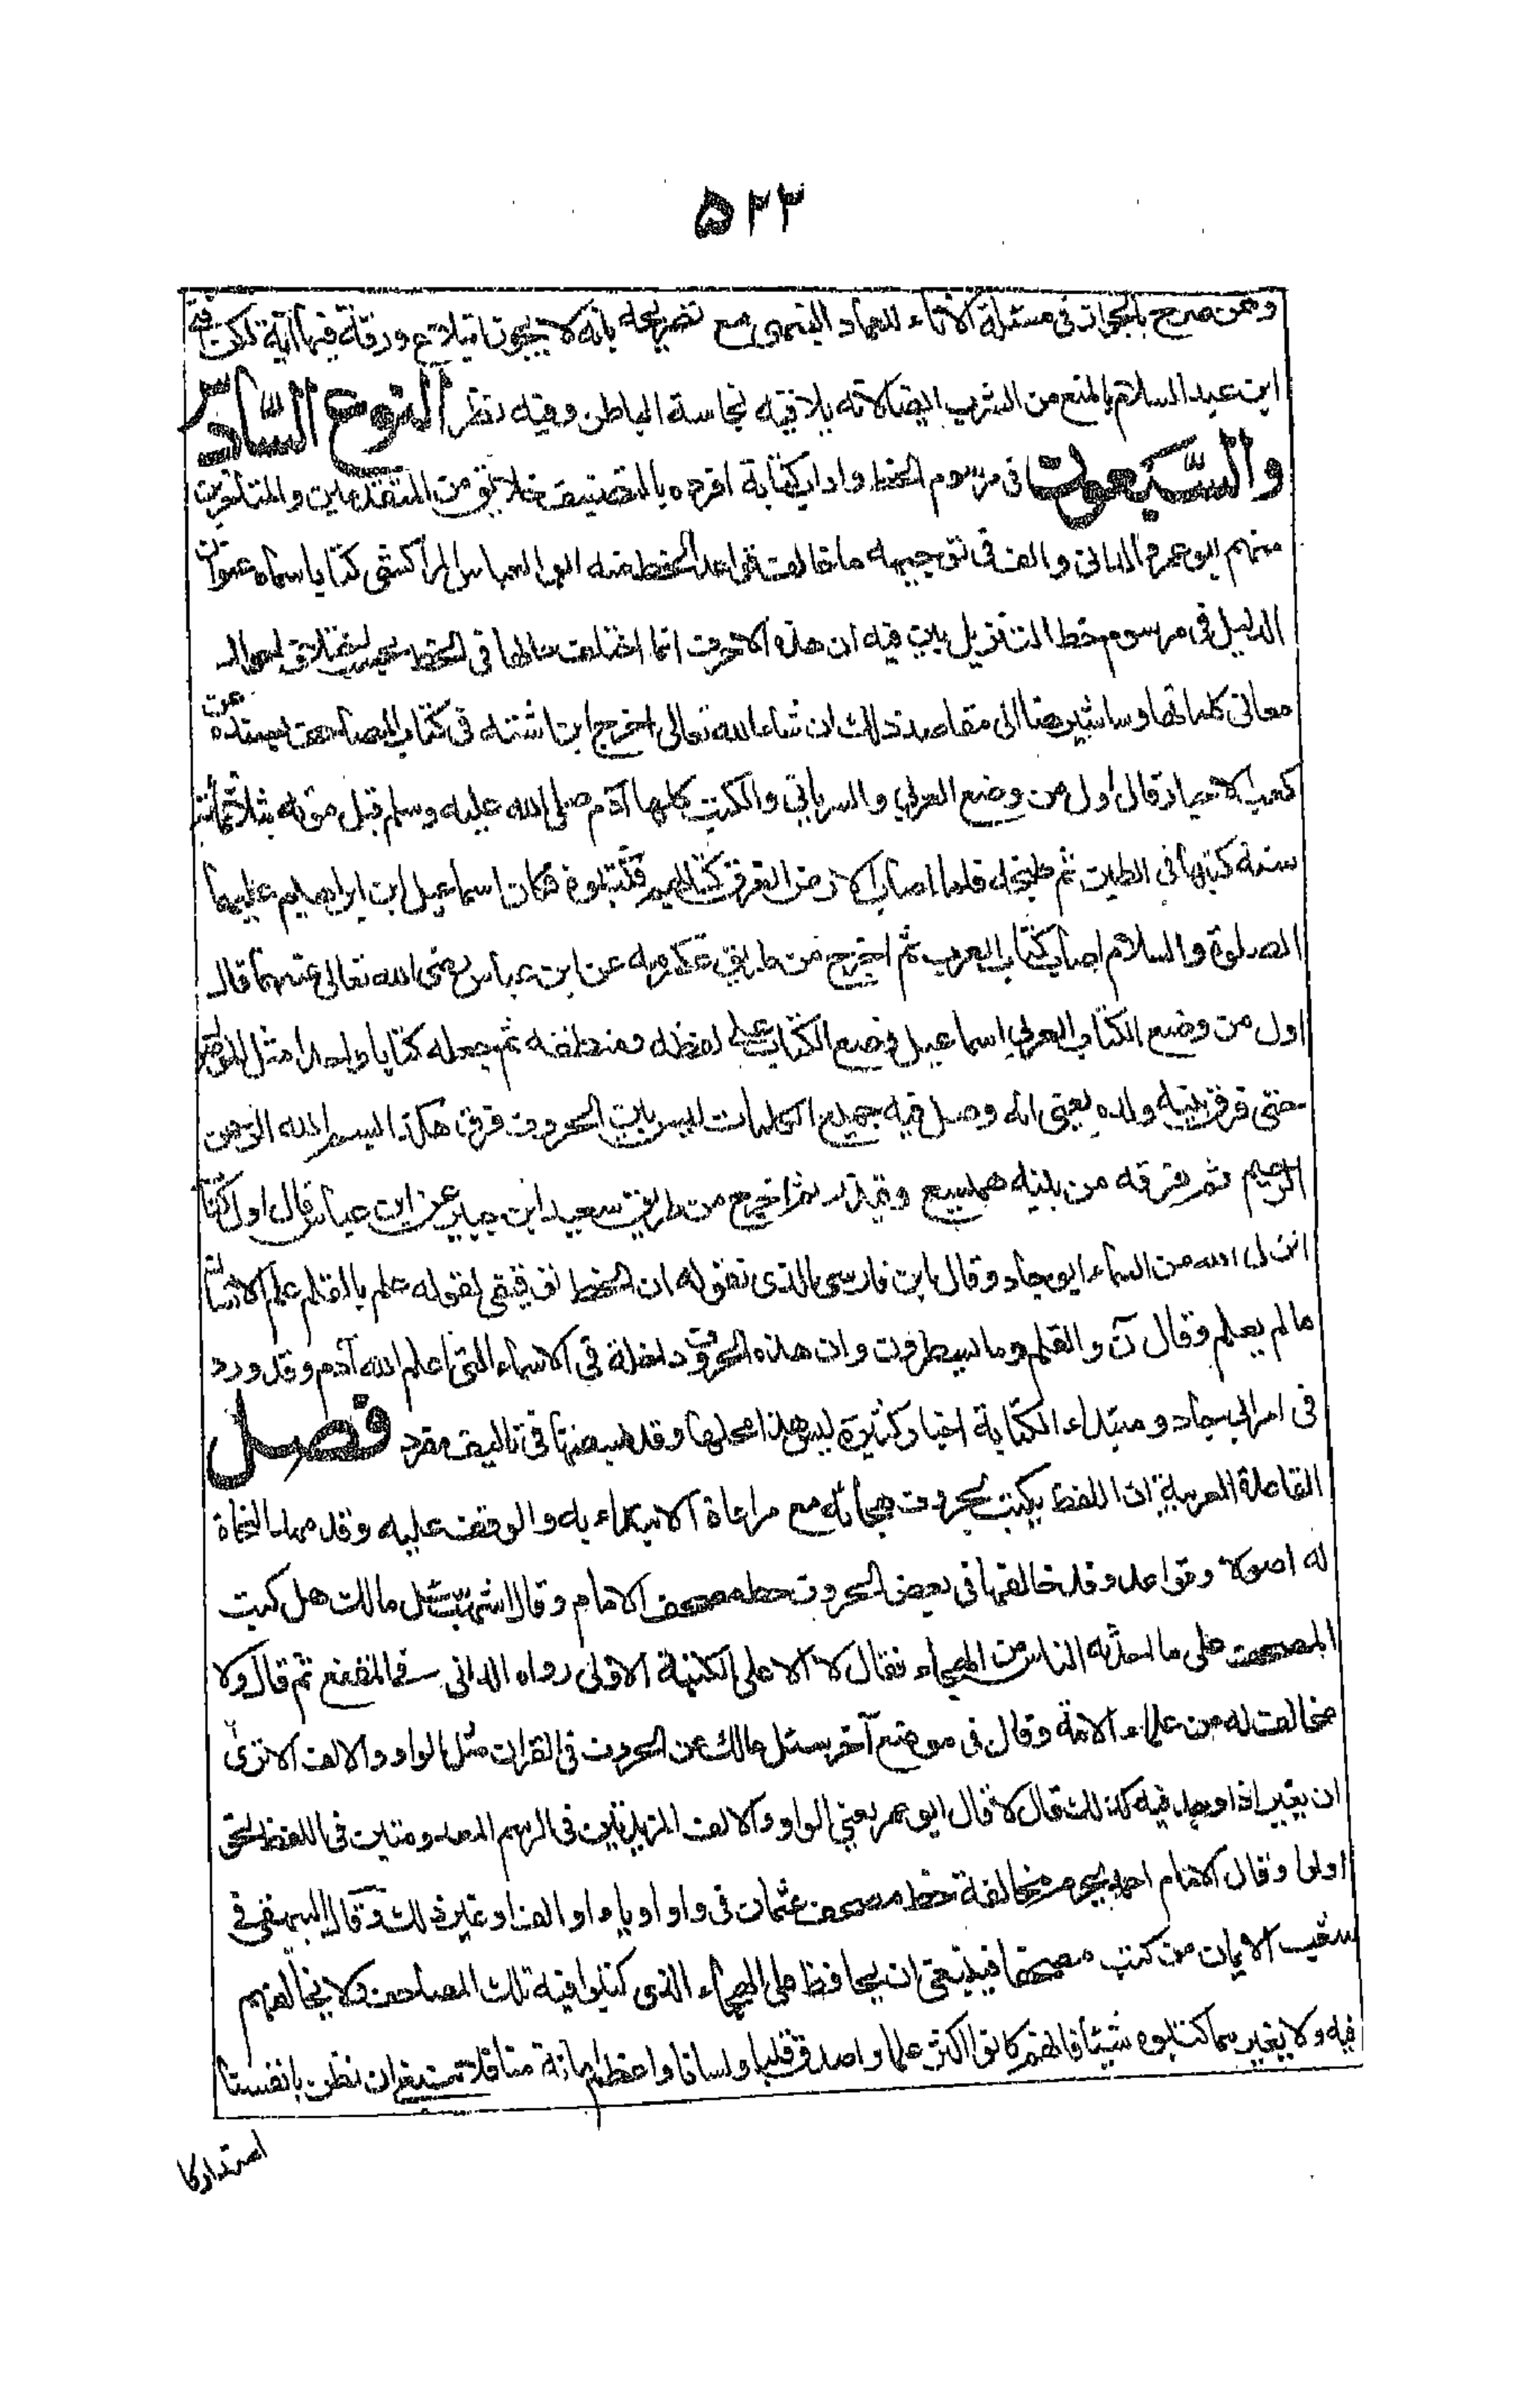 ۵۲۲
وممن صرح بالجواز فى مسئلة الاناء للعماد النيهى مع تصريحه بانه لا يجوز ابتلاع ورقة فيها آية لكن افتى
ابن عبد السلام بالمنع من الشرب ايضا لانه يلاقيه نجاسة الباطن وفيه نظر النوع السادس
والسبعون فى مرسوم الخط واداب كتابة افرده بالتصنيف خلايق من المتقدمين والمتاخرين
منهم ابو عمرو الدانى والف فى توجيه ما خالف قواعد الخط منه ابو العباس المراكشى كتابا سماه عنوان
الدليل فى مرسوم خط التنزيل بين فيه ان هذه الاحرف انما اختلف حالها فى الخط بحسب اختلاف احوال
معانى كلماتها وساشير هنا الى مقاصد ذلك ان شاء الله تعالى اخرج ابن اشته فى كتاب المصاحف بسنده عن
كعب الاحبار قال اول من وضع العربى والسريانى والكتب كلها آدم صلى الله عليه وسلم قبل موته بثلاثمائة
سنة كتبها فى الطين ثم طبخه فلما اصاب الارض الغرق كتابهم فكتبوه فكان اسماعيل ابن ابراهيم عليهما
الصلوة والسلام اصاب كتاب العرب ثم اخرج من طريق عكرمه عن ابن عباس رضى الله تعالى عنهما قال
اول من وضع الكتاب العربى اسماعيل وضع الكتاب على لفظه ومنطقه ثم جعله كتابا واحدا مثل الموصول
حتى فرق بينه ولده يعنى انه وصل فيه جميع الكلمات ليس بين الحروف فرق هكذا بسم الله الرحمن
الرحيم ثم فرقه من بنيه هميسع وقيذر ثم اخرج من طريق سعيد ابن جبير عن ابن عباس قال اول كتاب
انزل الله من السماء ابو جاد وقال ابن فارس الذى نقوله ان الخط توقيفى لقوله علم بالقلم علم الانسان
ما لم يعلم وقال ن والقلم وما يسطرون وان هذه الحروف داخلة فى الاسماء التى اعلم الله آدم وقد ورد
فى امر ابى جاد ومبتداء الكتابة اخبار كثيرة ليس هذا محلها وقد بسطتها فى تاليف مفرد فصل
القاعدة العربية ان اللفظ يكتب بحروف هجائه مع مراعاة الابتداء به والوقف عليه وقد مهد النحاة
له اصولا وقواعد وقد خالفها فى بعض الحروف خط مصحف الامام وقال اشهب سئل مالك هل كتب
المصحف على ما احدثه الناس من الهجاء فقال لا الا على الكتبة الاولى رواه الدانى فى المقنع ثم قال ولا
مخالف له من علماء الامة وقال فى موضع آخر سئل مالك عن الحروف فى القران مثل الواو والالف الا ترى
ان يغير اذا وجد فيه كذلك قال لا قال ابو عمر يعنى الواو والالف المزيدتين فى الرسم المعدومتين فى اللفظ نحو
اولوا وقال الامام احمد يحرم مخالفة خط مصحف عثمان فى واو او ياء او الف او غير ذلك وقال البيهقى فى
شعب الايمان من كتب مصحفا فينبغى ان يحافظ على الهجاء الذى كتبوا فيه تلك المصاحف ولا يخالفهم
فيه ولا يغير مما كتبوه شيئا فانهم كانوا اكثر علما واصدق قلبا ولسانا واعظم امانة منا فلا ينبغى ان نظن بانفسنا
استدراكا